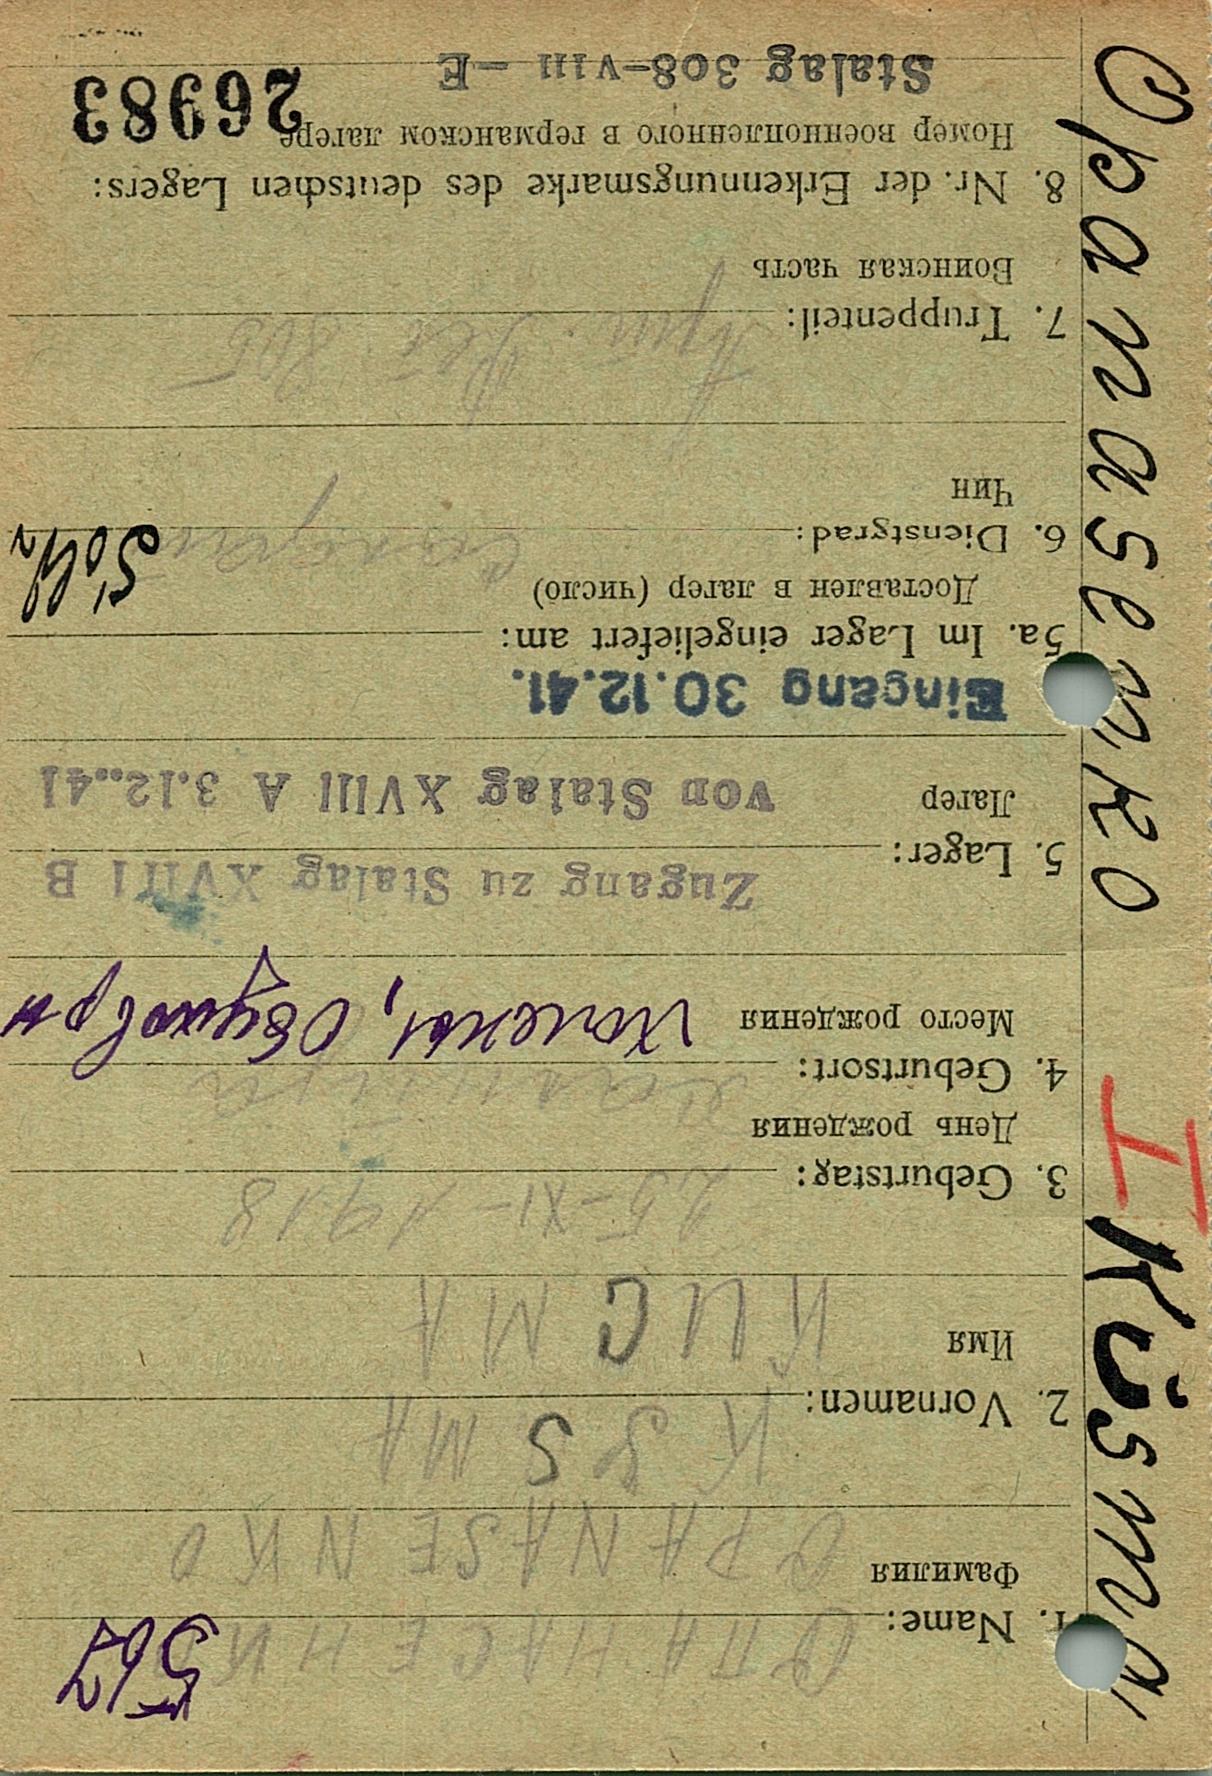 Opanasenko I Küsma
1. Name: ОПАНАСЕНКО
Фамилия
OPANASENKO
2. Vornamen: KUSMA
Имя
КИСМА
3. Geburtstag: 25-XI-1918
День рождения
4. Geburtsort:
Место рождения
5. Lager:
Zugang zu Stalag XVIII B
Лагер
von Stalag XVIII A 3.12..41
Eingang 30.12.41.
5a. Im Lager eingeliefert am:
Доставлен в лагер (число)
6. Dienstgrad:
Чин
7. Truppenteil:
Воинская часть
8. Nr. der Erkennungsmarke des deutschen Lagers:
Номер военнопленного в германском лагере
26983
Stalag 308-VIII-E